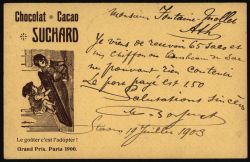 Chocolat - Cacao
SUCHARD
Le goûter c'est l'adopter!
Grand Prix. Paris 1900.
Monsieur Fontaine-
Je viens de recevoir 65 sacs et
un chiffon au bonheur de sac
ne pouvant rien contenir
Le port payé est 1.50
Salutations Sincères
19 Juillet 1903